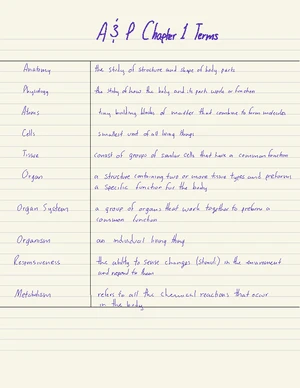 A & P Chapter 1 Terms
Anatomy the study of structure and shape of body parts
Physiology the study of how the body and its parts work or function
Atoms tiny building blocks of matter that combine to form molecules
Cells smallest unit of all living things
Tissue consist of groups of similar cells that have a common function
Organ a structure containing two or more tissue types and preforms
a specific function for the body
Organ System a group of organs that work together to preform a
common function
Organism an individual living thing
Responsiveness the ability to sense changes (stimuli) in the environment
and respond to them
Metabolism refers to all the chemical reactions that occur
in the body